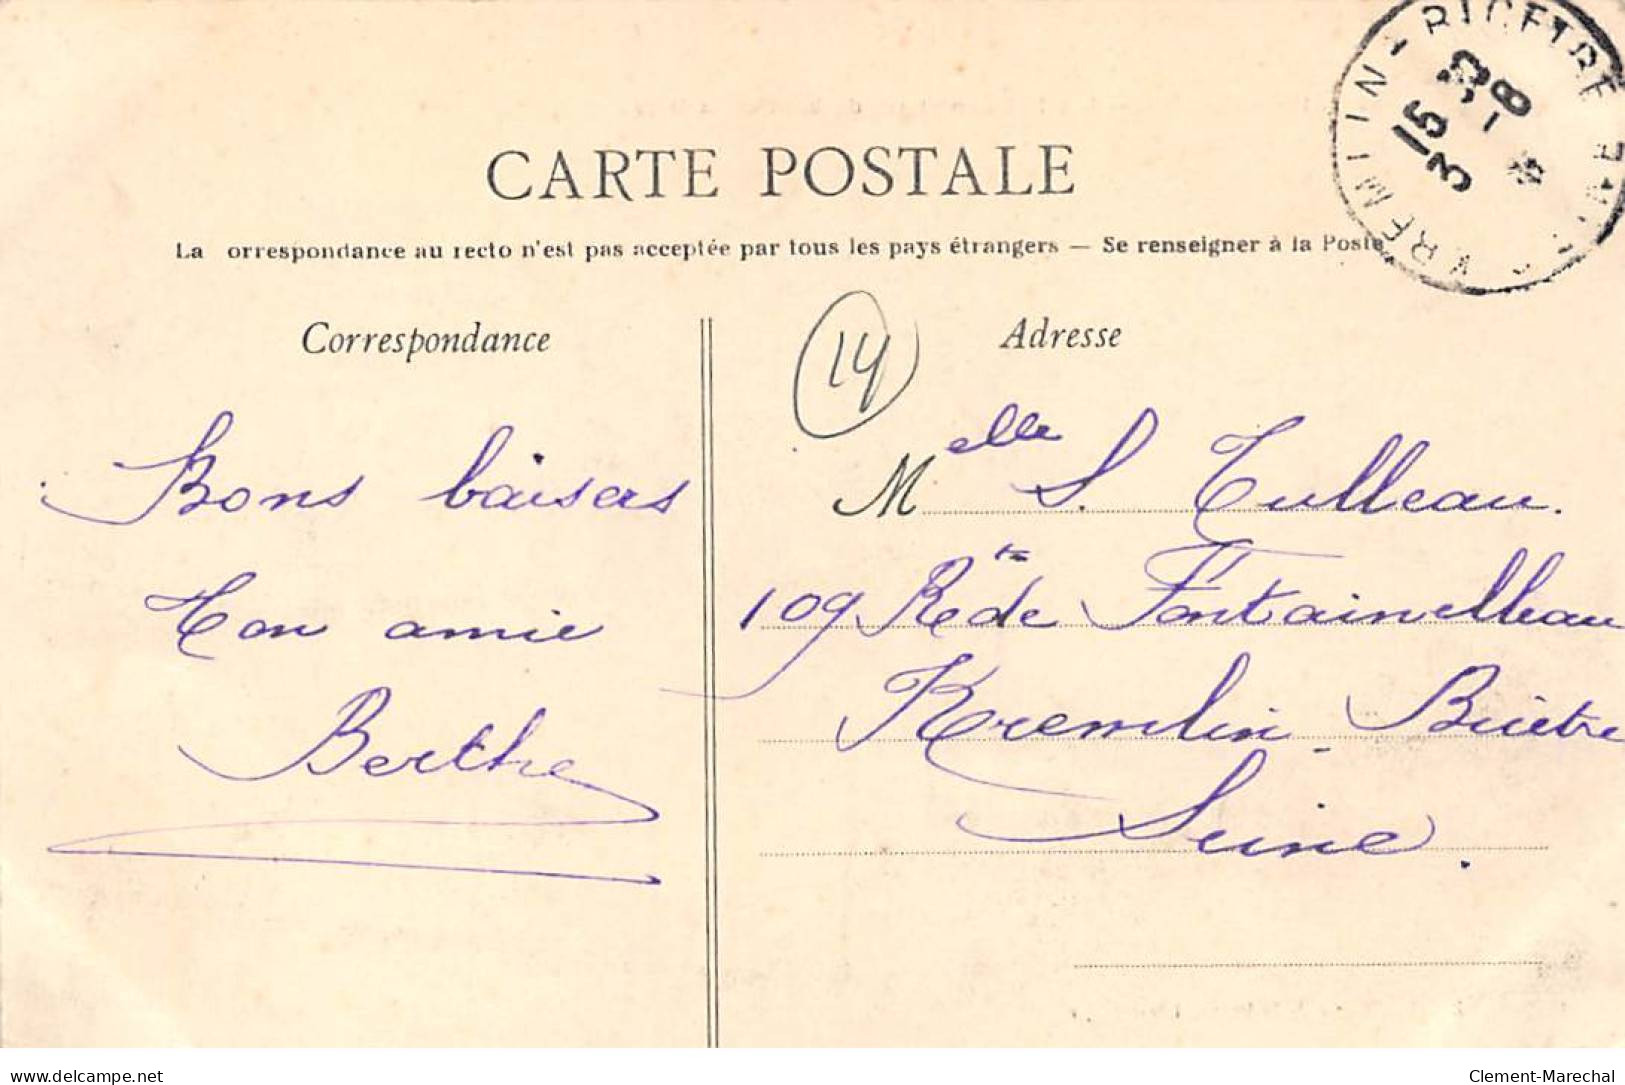 CARTE POSTALE
La orrespondance au recto n'est pas acceptée par tous les pays étrangers — Se renseigner à la Poste
Correspondance
Adresse
14
Bons baisers
Ton amie
Berthe
Melle S. Tulleau.
109 Rte de Fontainebleau
Kremlin-Bicêtre
Seine.
delcampe.net
Clement-Marechal